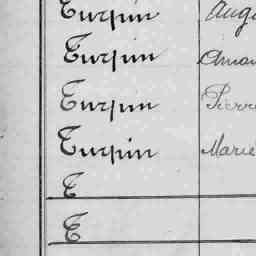 Turpin Aug
Turpin Aman
Turpin Pierre
Turpin Marie
T
T